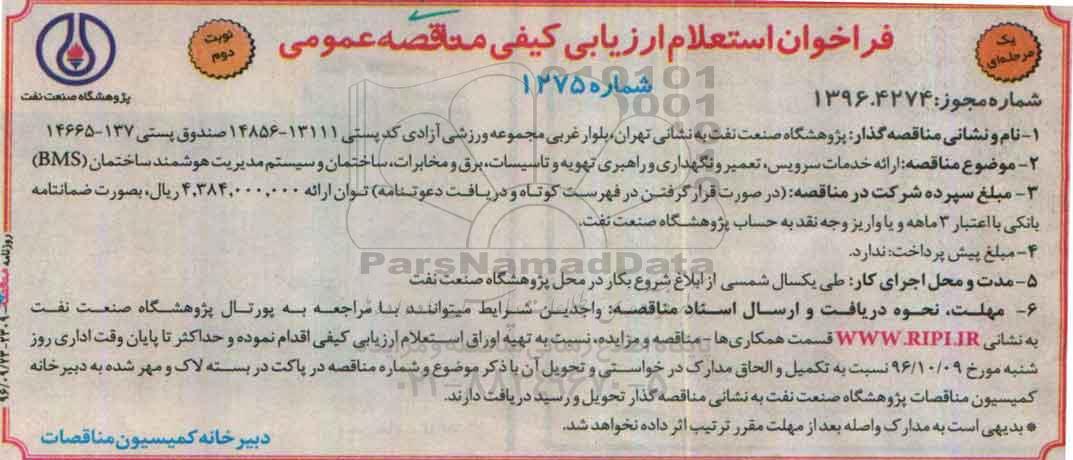 فراخوان استعلام ارزیابی کیفی مناقصه عمومی
شماره ۱۲۷۵
یک مرحله‌ای
نوبت دوم
پژوهشگاه صنعت نفت
شماره مجوز: ۱۳۹۶.۴۲۷۴
۱- نام و نشانی مناقصه گذار: پژوهشگاه صنعت نفت به نشانی تهران، بلوار غربی مجموعه ورزشی آزادی کد پستی ۱۳۱۱۱-۱۴۸۵۶ صندوق پستی ۱۳۷-۱۴۶۶۵
۲- موضوع مناقصه: ارائه خدمات سرویس، تعمیر و نگهداری و راهبری تهویه و تاسیسات، برق و مخابرات، ساختمان و سیستم مدیریت هوشمند ساختمان (BMS)
۳- مبلغ سپرده شرکت در مناقصه: (در صورت قرار گرفتن در فهرست کوتاه و دریافت دعوتنامه) توان ارائه ۴,۳۸۴,۰۰۰,۰۰۰ ریال، بصورت ضمانتنامه
بانکی با اعتبار ۳ ماهه و یا واریز وجه نقد به حساب پژوهشگاه صنعت نفت.
۴- مبلغ پیش پرداخت: ندارد.
۵- مدت و محل اجرای کار: طی یکسال شمسی از ابلاغ شروع بکار در محل پژوهشگاه صنعت نفت
۶- مهلت، نحوه دریافت و ارسال اسناد مناقصه: واجدین شرایط میتوانند با مراجعه به پورتال پژوهشگاه صنعت نفت
به نشانی WWW.RIPI.IR قسمت همکاری‌ها - مناقصه و مزایده، نسبت به تهیه اوراق استعلام ارزیابی کیفی اقدام نموده و حداکثر تا پایان وقت اداری روز
شنبه مورخ ۹۶/۱۰/۰۹ نسبت به تکمیل و الحاق مدارک درخواستی و تحویل آن با ذکر موضوع و شماره مناقصه در پاکت در بسته لاک و مهر شده به دبیرخانه
کمیسیون مناقصات پژوهشگاه صنعت نفت به نشانی مناقصه گذار تحویل و رسید دریافت دارند.
* بدیهی است به مدارک واصله بعد از مهلت مقرر ترتیب اثر داده نخواهد شد.
دبیرخانه کمیسیون مناقصات
ParsNamadData
۰۲۱-۸۸۳۴۹۶۷۰-۵